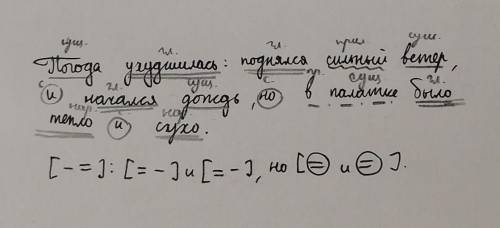 сущ. гл. гл. прил. сущ.
Погода ухудшилась: поднялся сильный ветер,
с. гл. сущ. с. пр. сущ. гл.
и начался дождь, но в палатке было
нар. с. нар.
тепло и сухо.
[- =]: [= -] и [= -], но [= и =].